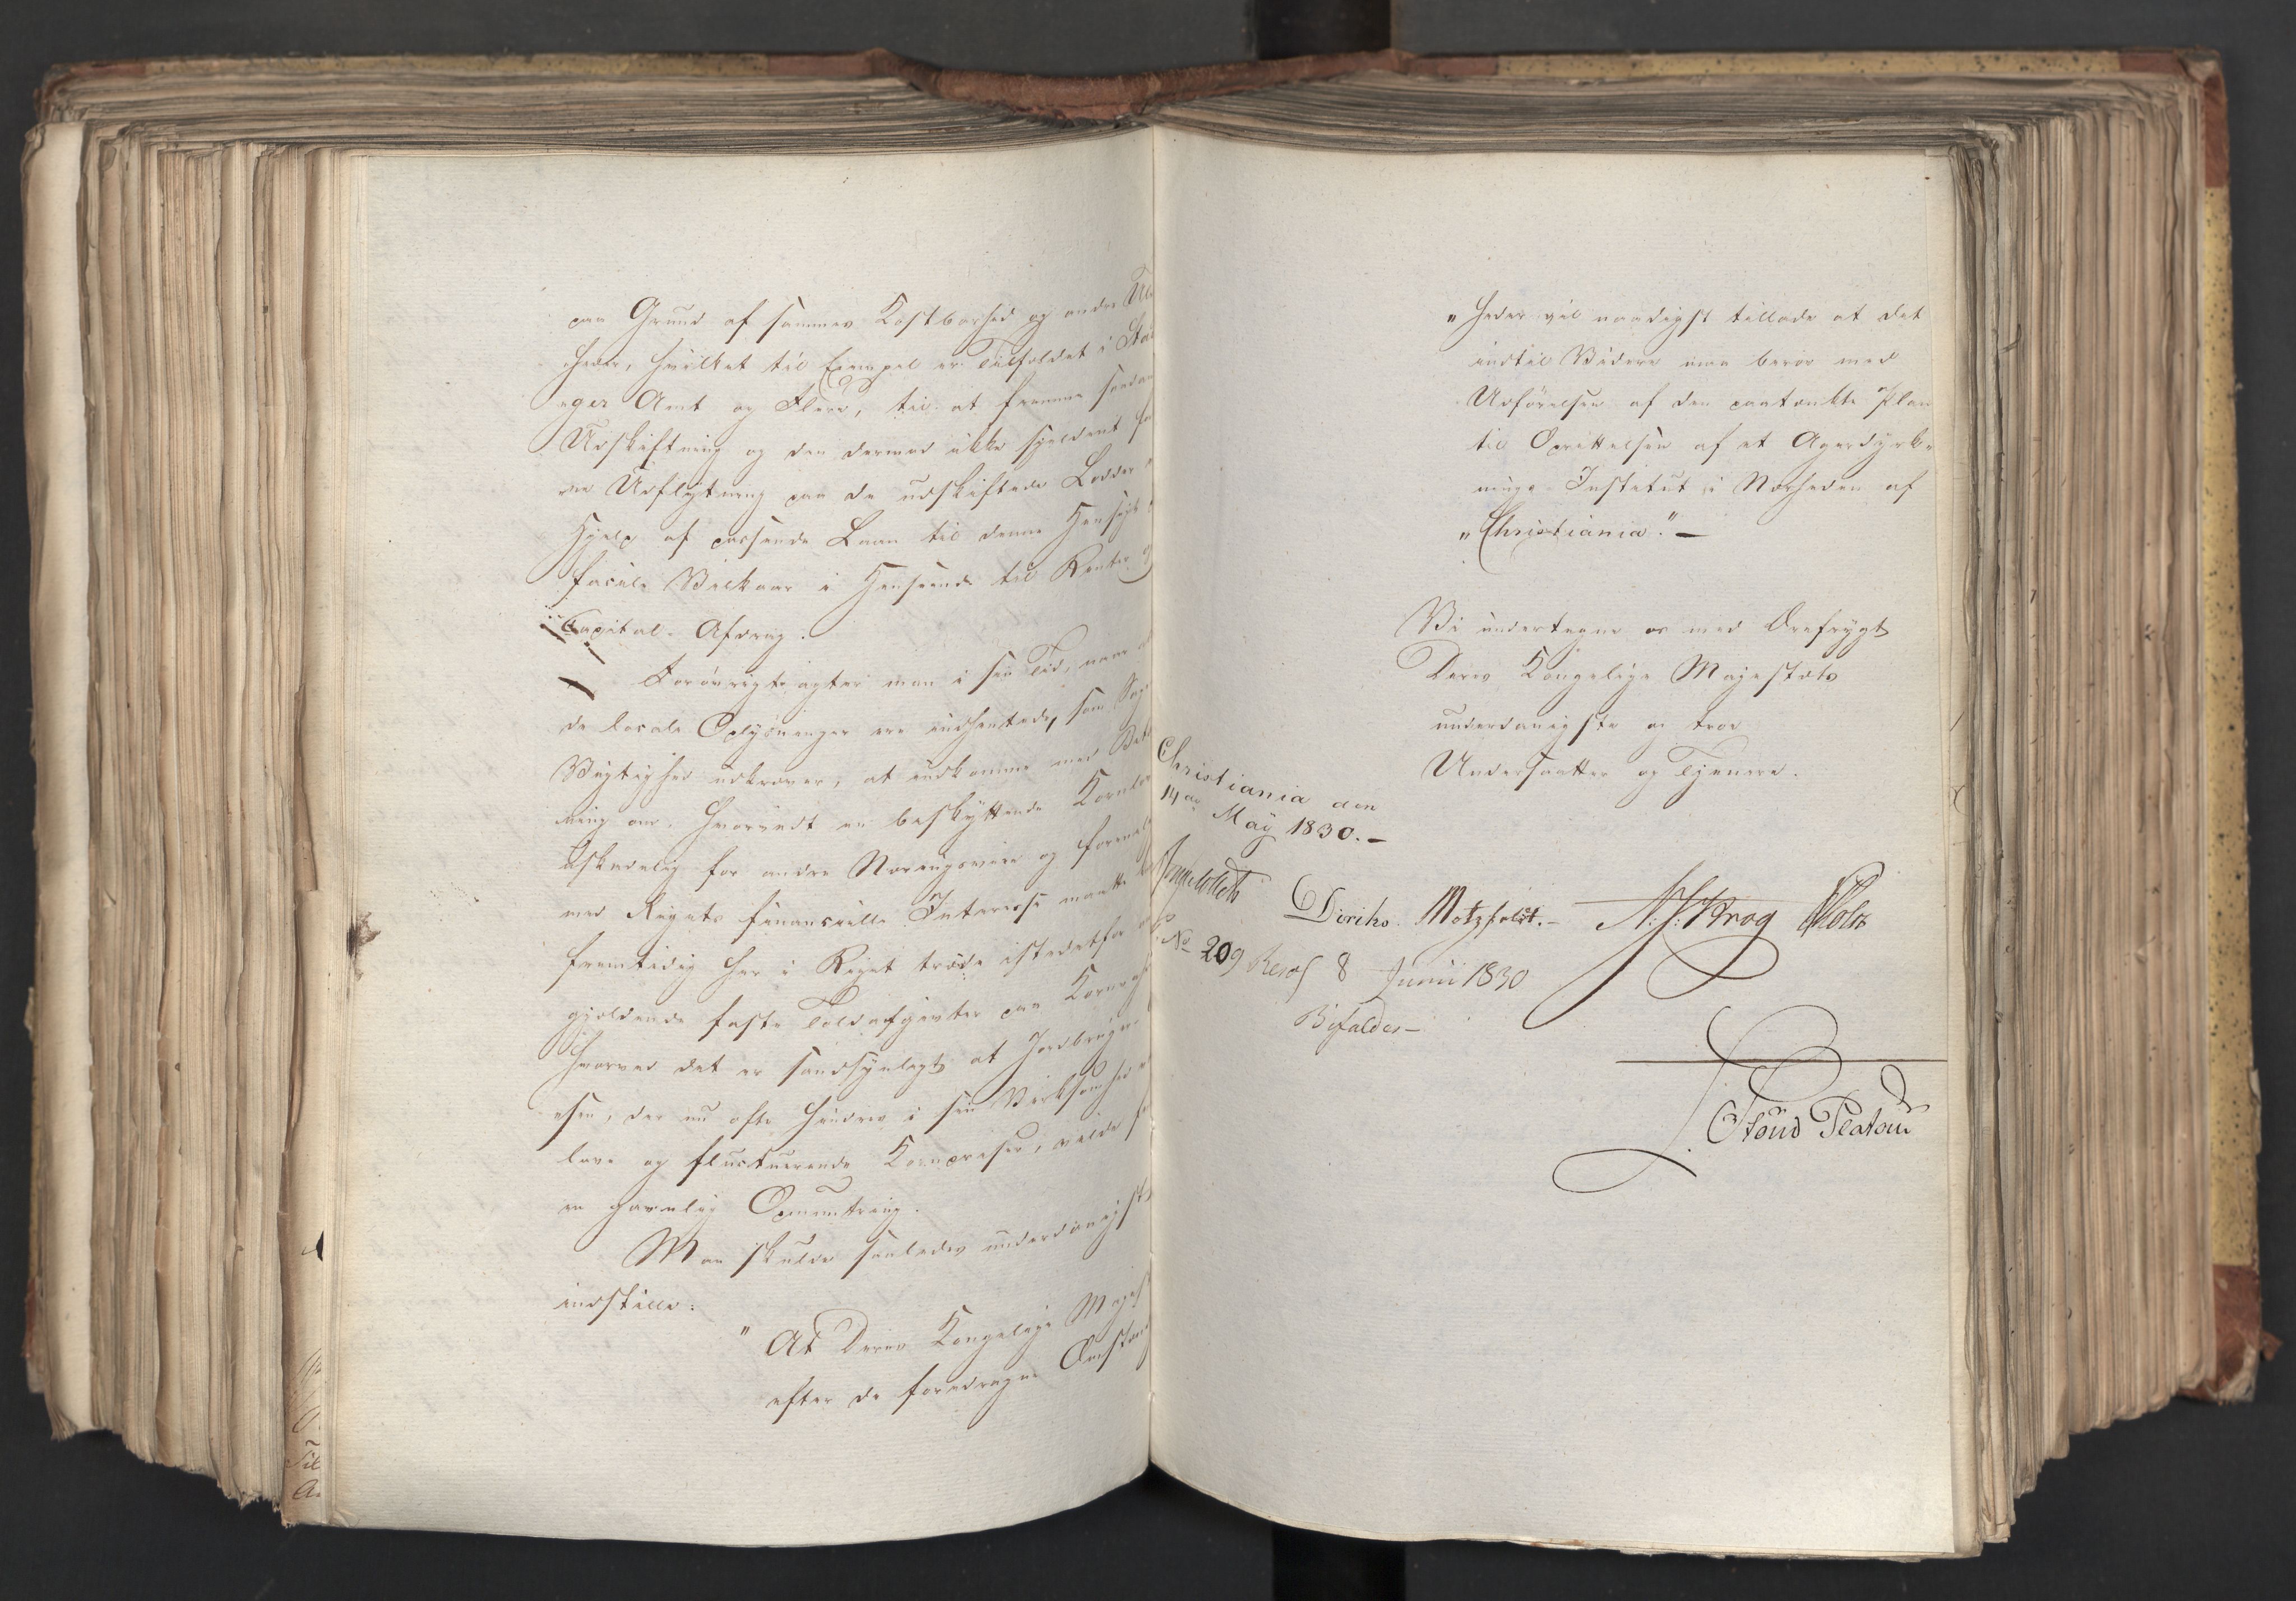 paa Grund af sammes Kostbarhed og andre
heder, hvilket til Exempel er Tilfældet i
ger Amt og Flere, til at fremme saadan
Udskiftning og den dermed ikke sjeldent
ne Udflytning paa de udskiftede Lodder
Hjelp af passende Laan til denne Hensigt
facile Vilkaar i Henseende til Renter
Capital-Afdrag.
Forøvrigt agter man i sin Tid, naar
de locale Oplysninger ere indhentede, som
Vigtighed udkræver, at indkomme med
ning om, hvorvidt en beskyttende
uskadelig for andre Næringsveie og
med Rigets finansielle Interesse maatte
fremtidig her i Riget træde istedetfor
gjældende faste Toldafgivter paa
hvorved det er sandsynligt at
sen, der nu ofte hindres i sin Virksomhed
lave og fluctuerende Kornpriser, vilde
en gavnlig Opmuntring.
Man skulde saaledes underdanigst
indstille:
" At Deres Kongelige
efter de foredragne
" heder vil naadigst tillade at det
indtil Videre maa beroe med
Udførelsen af den paatænkte Plan
til Oprettelsen af et Agerdyrk-
nings-Institut i Nærheden af
"Christiania." —
Vi undertegne os med Ærefrygt
Deres Kongelige Majestæts
underdanigste og troe
Undersaatter og Tjenere.
Christiania den
14de May 1830. —
Diriks. Motzfeldt. — N. J. Krog Holst
No 209 Resol 8 Junii 1830
Bifaldes —
Stoud Platou